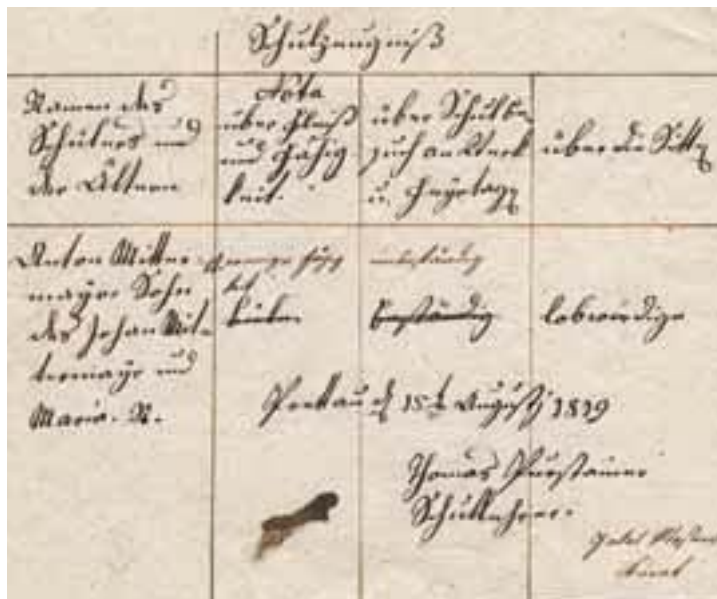 Schulzeugniß
Namen des
Schülers und
der Ältern
Nota
über Fleiß
und Fähig
keit.
über Schulbe-
such an Werk
u. Feyrtagen
über die Sitten
Anton Mitter-
mayr Sohn
des Johan Mit-
termayr und
Maria. N.
unbeständig
beständig
lobwürdige
Prettau den 15t August 1819
Thomas
Schullehrer.